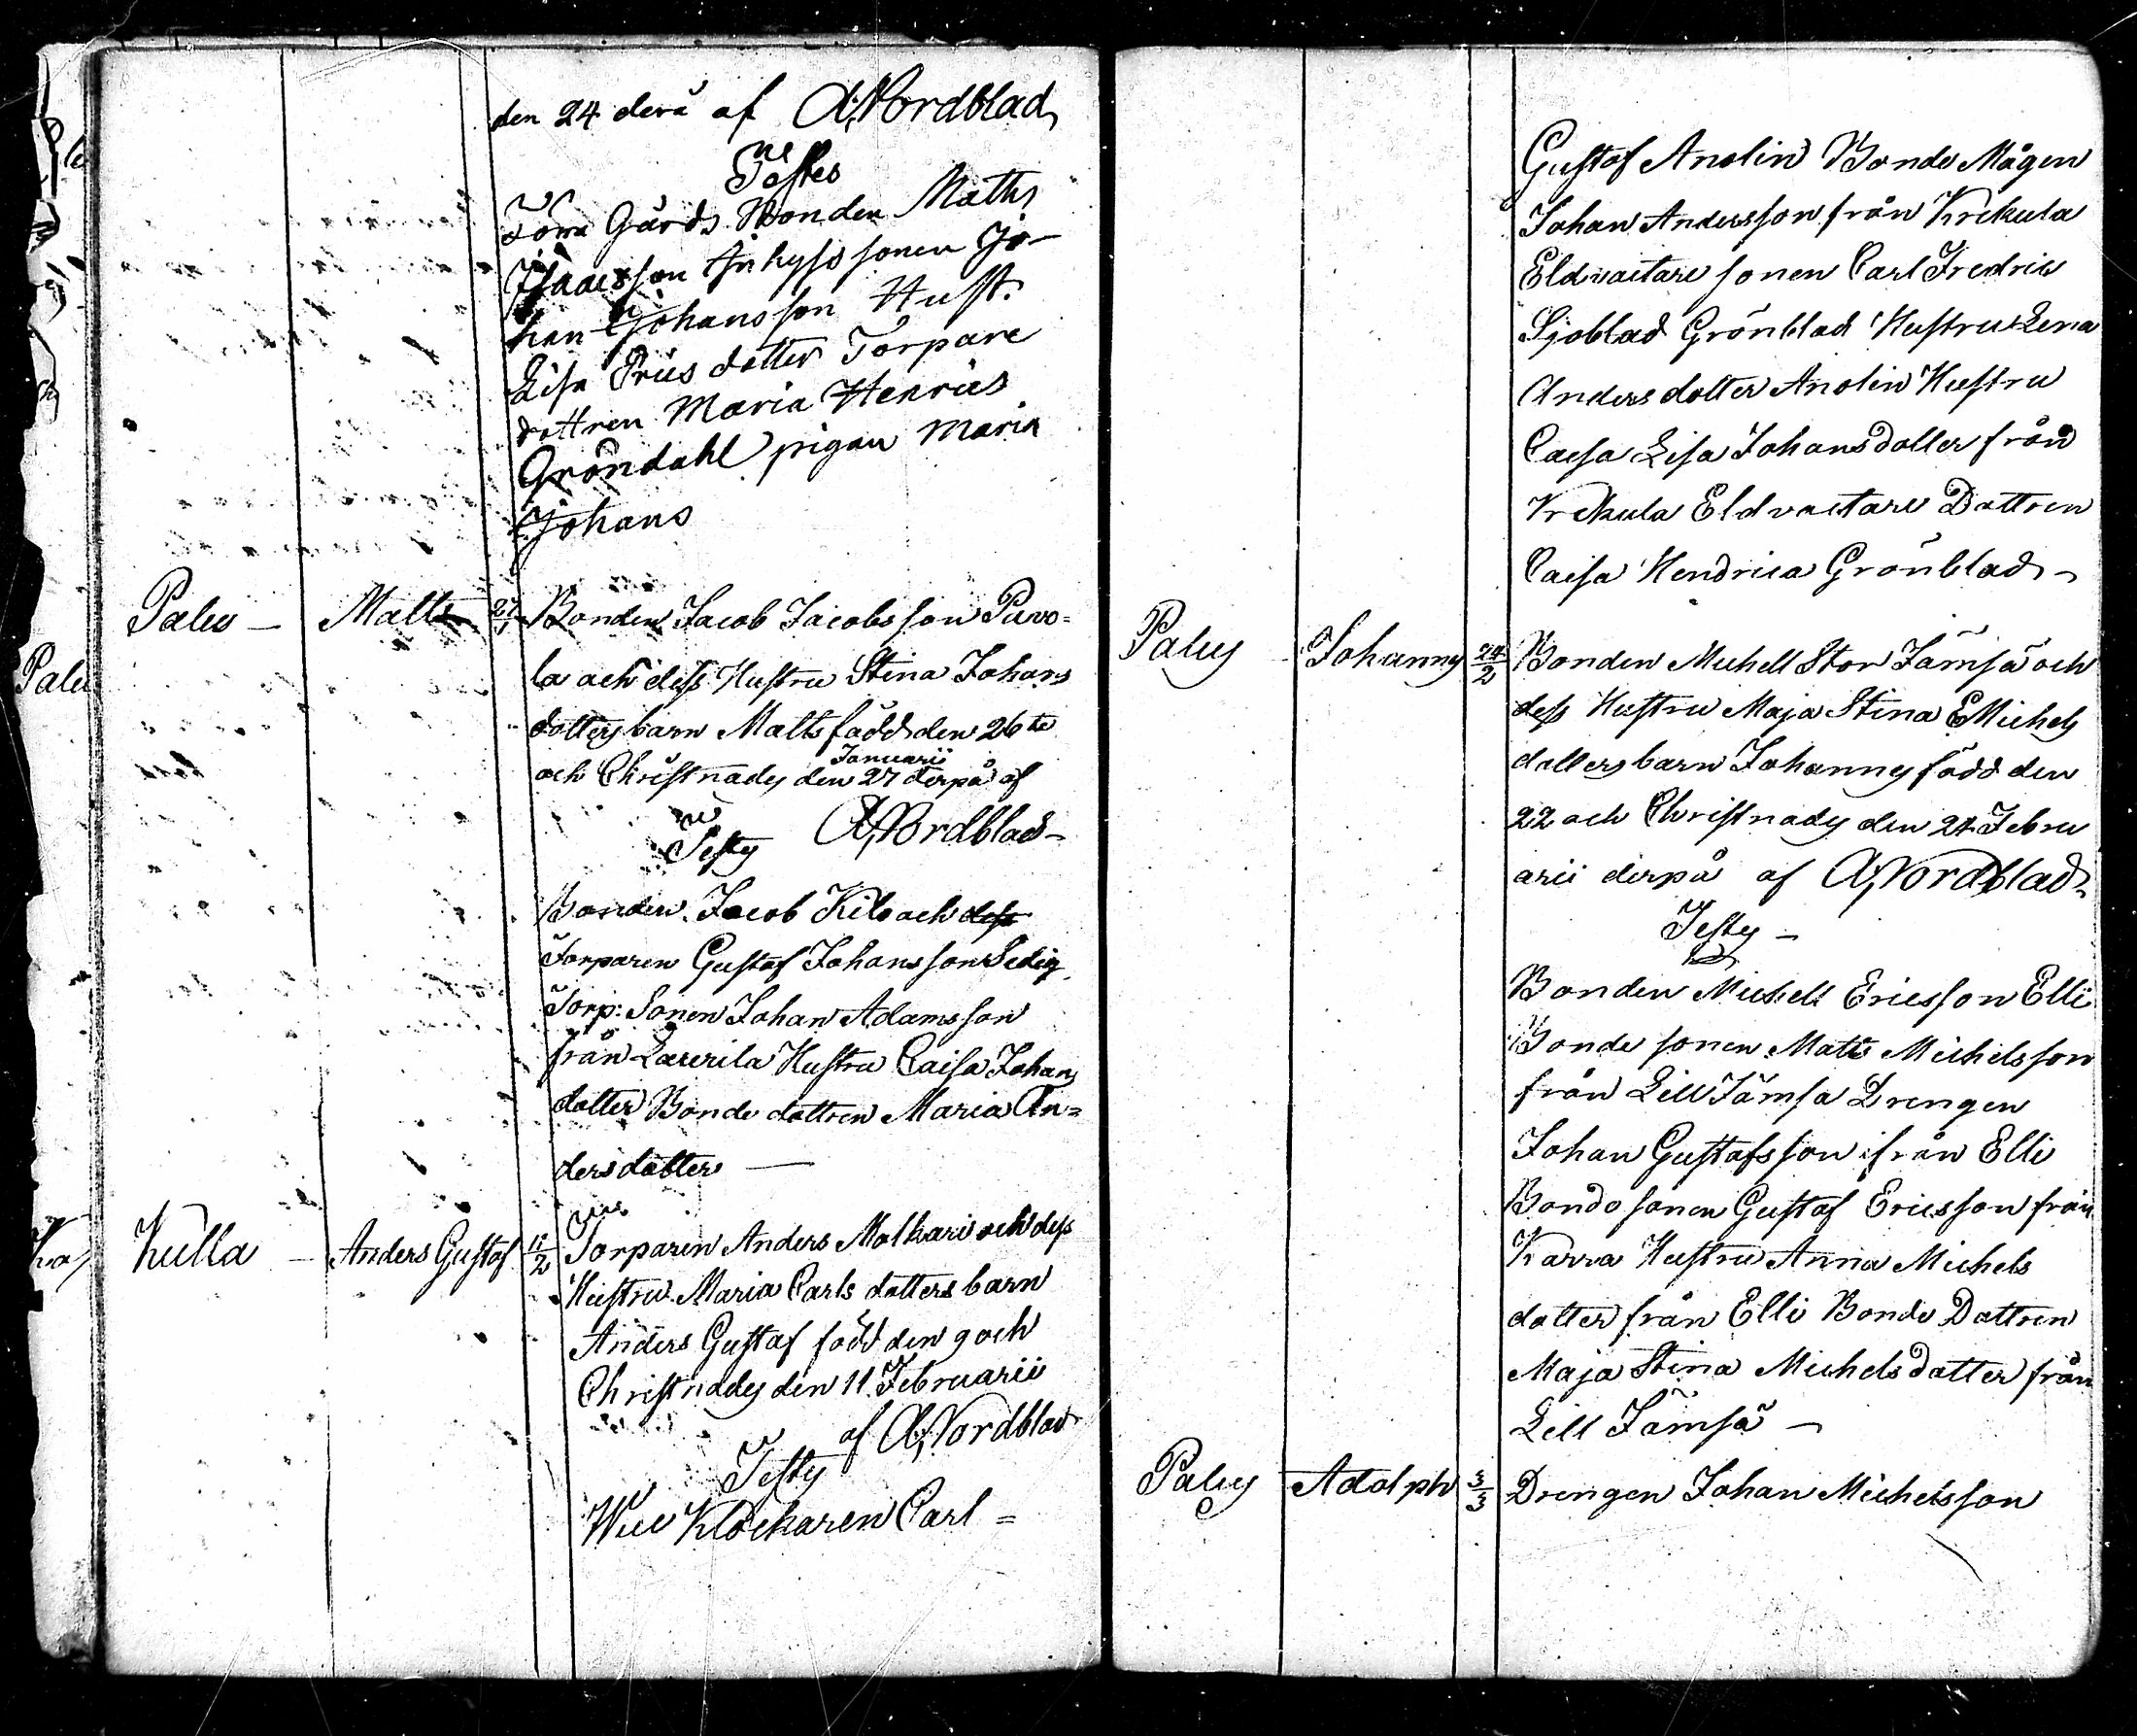 den 24 derå af A. Nordblad
Testes
Torra Gårds Bonden Maths
Isaacsson Inhyses sonen Jo-
han Johansson Hust.
Lisa Erics dotter Torpare
dottren Maria Henrics
Gröndahl pigan Maria
Johans
Palus — Matts 27/1 Bonden Jacob Jacobsson Pavo=
la och dess Hustru Stina Johans
dotters barn Matts född den 26te
Januarii
och Christnades den 27 derpå af
A. Nordblad
Testes
Bonden Jacob Kilo och dess
Torparen Gustaf Johansson Sedig
Torp: Sonen Johan Adamsson
från Laurila Hustru Caisa Johans
dotter Bonde dottren Maria An=
dersdotter —
Kulla — Anders Gustaf 11/2 Torparen Anders Molkari och dess
Hustru Maria Carls dotters barn
Anders Gustaf född den 9 och
Christnades den 11 Februarii
af A. Nordblad
Testes
Vice Klockaren Carl =
Gustaf Anolin Bonde Mågen
Johan Andersson från Krekula
Eldvactare sonen Carl Fredric
Sjoblad Grönblad Hustru Lena
Anders dotter Anolin Hustru
Caisa Lisa Johansdotter från
Krekula Eldvactare Dottren
Caisa Hendrica Grönblad —
Palus Johannes 24/2 Bonden Michell Stor Jämsä och
dess Hustru Maja Stina Michels
dotters barn Johannes född den
22 och Christnades den 24 Febru
arii derpå af A. Nordblad
Testes —
Bonden Michell Ericsson Elli
Bonde sonen Matts Michelsson
från Lill Jämsä Drengen
Johan Gustafsson ifrån Elli
Bonde sonen Gustaf Ericsson från
Karra Hustru Anna Michels
dotter från Elli Bonde Dottren
Maja Stina Michelsdotter från
Lill Jämsä —
Palus Adolph 3/3 Drengen Johan Michelsson